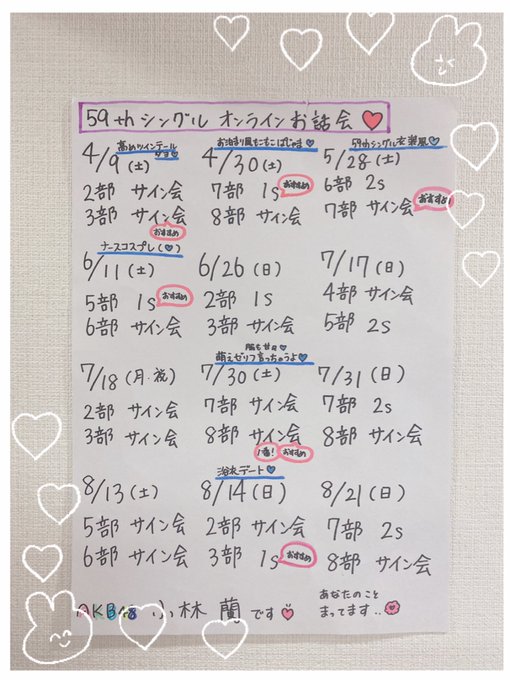 59thシングル オンラインお話会
高めツインテール
お泊まり風もこもこぱじゃま
59thシングル衣装風
4/9(土) 4/30(土) 5/28(土)
2部 サイン会 7部 1s おすすめ 6部 2s
3部 サイン会 8部 サイン会 7部 サイン会 おすすめ
おすすめ
ナースコスプレ(♡)
6/11(土) 6/26(日) 7/17(日)
5部 1s おすすめ 2部 1s 4部 サイン会
6部 サイン会 3部 サイン会 5部 2s
萌えゼリフ言っちゃうよ
7/18(月・祝) 7/30(土) 7/31(日)
2部 サイン会 7部 サイン会 7部 2s
3部 サイン会 8部 サイン会 8部 サイン会
1番! おすすめ
浴衣デート
8/13(土) 8/14(日) 8/21(日)
5部 サイン会 2部 サイン会 7部 2s
6部 サイン会 3部 1s おすすめ 8部 サイン会
AKB48 小林 蘭です
あなたのこと
まってます..